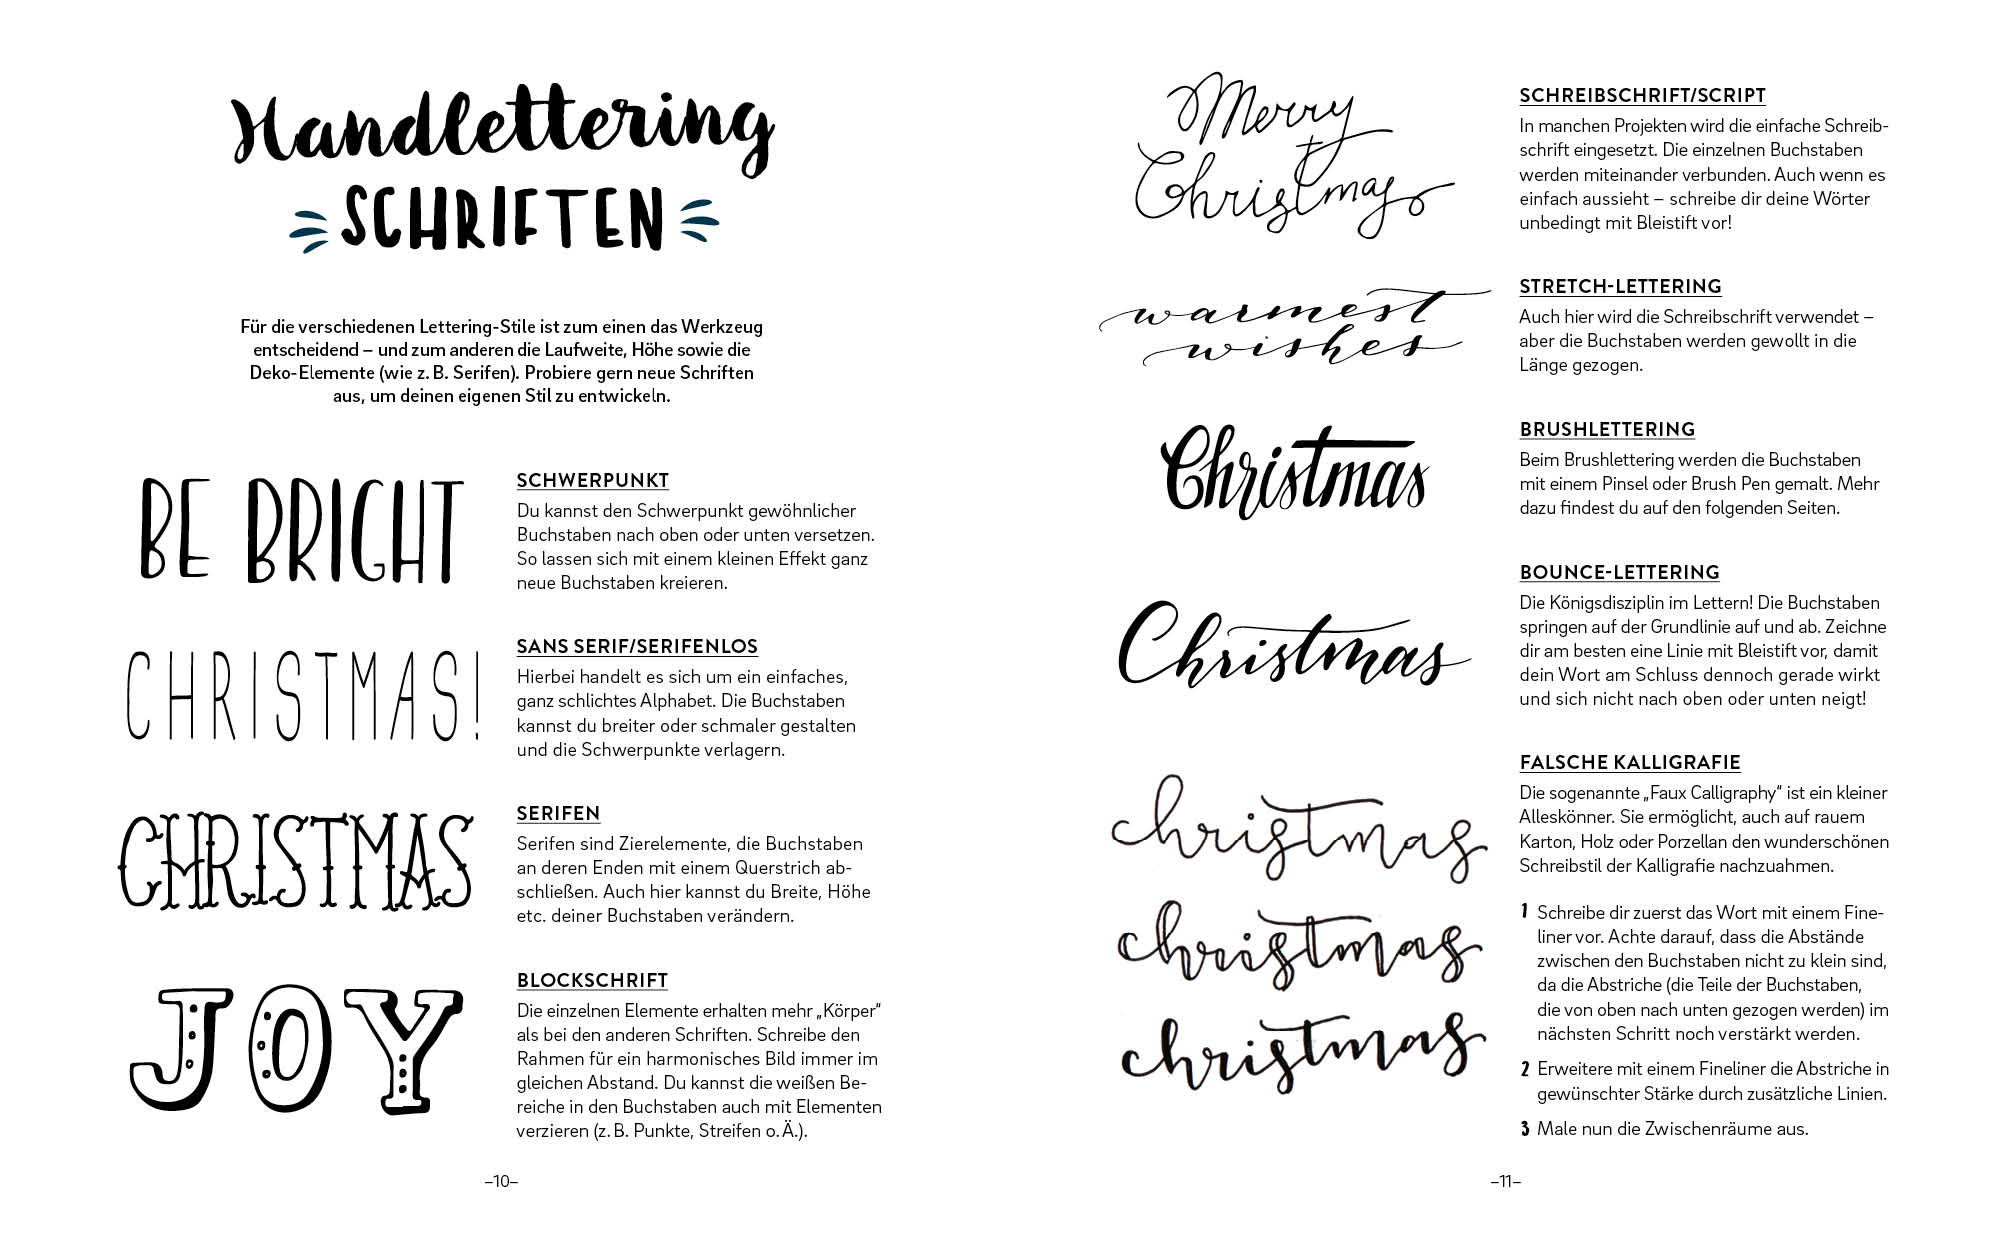 Handlettering
SCHRIFTEN
Für die verschiedenen Lettering-Stile ist zum einen das Werkzeug
entscheidend – und zum anderen die Laufweite, Höhe sowie die
Deko-Elemente (wie z. B. Serifen). Probiere gern neue Schriften
aus, um deinen eigenen Stil zu entwickeln.
BE BRIGHT
SCHWERPUNKT
Du kannst den Schwerpunkt gewöhnlicher
Buchstaben nach oben oder unten versetzen.
So lassen sich mit einem kleinen Effekt ganz
neue Buchstaben kreieren.
CHRISTMAS!
SANS SERIF/SERIFENLOS
Hierbei handelt es sich um ein einfaches,
ganz schlichtes Alphabet. Die Buchstaben
kannst du breiter oder schmaler gestalten
und die Schwerpunkte verlagern.
CHRISTMAS
SERIFEN
Serifen sind Zierelemente, die Buchstaben
an deren Enden mit einem Querstrich ab-
schließen. Auch hier kannst du Breite, Höhe
etc. deiner Buchstaben verändern.
JOY
BLOCKSCHRIFT
Die einzelnen Elemente erhalten mehr „Körper“
als bei den anderen Schriften. Schreibe den
Rahmen für ein harmonisches Bild immer im
gleichen Abstand. Du kannst die weißen Be-
reiche in den Buchstaben auch mit Elementen
verzieren (z. B. Punkte, Streifen o. Ä.).
–10–
Merry
Christmas
SCHREIBSCHRIFT/SCRIPT
In manchen Projekten wird die einfache Schreib-
schrift eingesetzt. Die einzelnen Buchstaben
werden miteinander verbunden. Auch wenn es
einfach aussieht – schreibe dir deine Wörter
unbedingt mit Bleistift vor!
warmest
wishes
STRETCH-LETTERING
Auch hier wird die Schreibschrift verwendet –
aber die Buchstaben werden gewollt in die
Länge gezogen.
Christmas
BRUSHLETTERING
Beim Brushlettering werden die Buchstaben
mit einem Pinsel oder Brush Pen gemalt. Mehr
dazu findest du auf den folgenden Seiten.
Christmas
BOUNCE-LETTERING
Die Königsdisziplin im Lettern! Die Buchstaben
springen auf der Grundlinie auf und ab. Zeichne
dir am besten eine Linie mit Bleistift vor, damit
dein Wort am Schluss dennoch gerade wirkt
und sich nicht nach oben oder unten neigt!
christmas
christmas
christmas
FALSCHE KALLIGRAFIE
Die sogenannte „Faux Calligraphy“ ist ein kleiner
Alleskönner. Sie ermöglicht, auch auf rauem
Karton, Holz oder Porzellan den wunderschönen
Schreibstil der Kalligrafie nachzuahmen.
1 Schreibe dir zuerst das Wort mit einem Fine-
liner vor. Achte darauf, dass die Abstände
zwischen den Buchstaben nicht zu klein sind,
da die Abstriche (die Teile der Buchstaben,
die von oben nach unten gezogen werden) im
nächsten Schritt noch verstärkt werden.
2 Erweitere mit einem Fineliner die Abstriche in
gewünschter Stärke durch zusätzliche Linien.
3 Male nun die Zwischenräume aus.
–11–